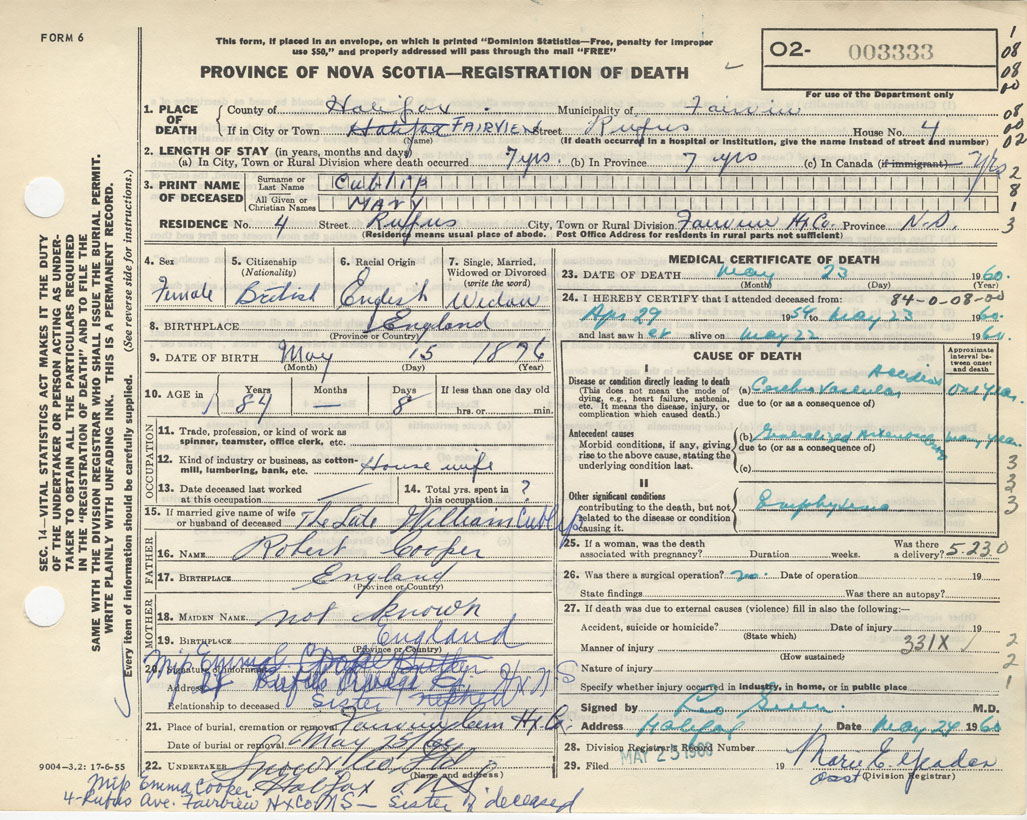 FORM 6
This form, if placed in an envelope, on which is printed "Dominion Statistics—Free, penalty for improper
use $50," and properly addressed will pass through the mail "FREE"
O2- 003333
For use of the Department only
PROVINCE OF NOVA SCOTIA—REGISTRATION OF DEATH
1
08
08
00
08
00
02
2
8
1
3
SEC. 14—VITAL STATISTICS ACT MAKES IT THE DUTY
OF THE UNDERTAKER OR PERSON ACTING AS UNDER-
TAKER TO OBTAIN ALL THE PARTICULARS REQUIRED
IN THE "REGISTRATION OF DEATH" AND TO FILE THE
SAME WITH THE DIVISION REGISTRAR WHO SHALL ISSUE THE BURIAL PERMIT.
WRITE PLAINLY WITH UNFADING INK. THIS IS A PERMANENT RECORD.
Every item of information should be carefully supplied. (See reverse side for instructions.)
1. PLACE OF DEATH
County of Halifax Municipality of Fairview
If in City or Town Halifax FAIRVIEW Street Rufus House No. 4
(Name) (If death occurred in a hospital or institution, give the name instead of street and number)
2. LENGTH OF STAY (in years, months and days)
(a) In City, Town or Rural Division where death occurred 7 yrs. (b) In Province 7 yrs (c) In Canada (if immigrant) 7 yrs
3. PRINT NAME OF DECEASED
Surname or Last Name Cutlip
All Given or Christian Names MARY
RESIDENCE No. 4 Street Rufus City, Town or Rural Division Fairview Hx Co. Province N.S.
(Residence means usual place of abode. Post Office Address for residents in rural parts not sufficient)
4. Sex Female
5. Citizenship (Nationality) British
6. Racial Origin English
7. Single, Married, Widowed or Divorced (write the word) Widow
8. BIRTHPLACE England
(Province or Country)
9. DATE OF BIRTH May 15 1876
(Month) (Day) (Year)
10. AGE in Years 84 Months — Days 8 If less than one day old hrs. or min.
OCCUPATION
11. Trade, profession, or kind of work as
spinner, teamster, office clerk, etc.
12. Kind of industry or business, as cotton-
mill, lumbering, bank, etc. House wife
13. Date deceased last worked at this occupation —
14. Total yrs. spent in this occupation ?
15. If married give name of wife
or husband of deceased The Late William Cutlip
FATHER
16. NAME Robert Cooper
17. BIRTHPLACE England
(Province or Country)
MOTHER
18. MAIDEN NAME not known
19. BIRTHPLACE England
(Province or Country)
20. Signature of informant Miss Emma Cooper
Address 4 Rufus Hx N S
Relationship to deceased Sister
21. Place of burial, cremation or removal Fairview Hx Co.
Date of burial or removal May 25/60
22. UNDERTAKER Snow
Halifax N S
(Name and address)
9004-3.2: 17-6-55
Miss Emma Cooper
4-Rufus Ave. Fairview Hx Co. N S — Sister of deceased
MEDICAL CERTIFICATE OF DEATH
23. DATE OF DEATH May 23 1960.
(Month) (Day)
24. I HEREBY CERTIFY that I attended deceased from: 84-0-08-00
Apr 29 1959 to May 23 1960.
and last saw her alive on May 22 1960.
CAUSE OF DEATH
Approximate interval between onset and death
I
Disease or condition directly leading to death
(This does not mean the mode of
dying, e.g., heart failure, asthenia,
etc. It means the disease, injury, or
complication which caused death.)
(a) Cerebro Vascular Accident One year.
due to (or as a consequence of)
Antecedent causes
Morbid conditions, if any, giving
rise to the above cause, stating the
underlying condition last.
(b) Generalized Arteriosclerosis many years.
due to (or as a consequence of)
(c)
3
3
3
3
II
Other significant conditions
contributing to the death, but not
related to the disease or condition
causing it.
Emphysema
25. If a woman, was the death
associated with pregnancy? Duration weeks. Was there a delivery? 5.230
26. Was there a surgical operation? no. Date of operation 19
State findings Was there an autopsy?
27. If death was due to external causes (violence) fill in also the following:—
Accident, suicide or homicide? Date of injury 19
(State which)
Manner of injury 331X
(How sustained)
Nature of injury
2
2
1
Specify whether injury occurred in industry, in home, or in public place
Signed by Leo Green M.D.
Address Halifax Date May 24 1960
28. Division Registrar's Record Number
29. Filed MAY 25 1960 19 Marie E.
(Division Registrar)